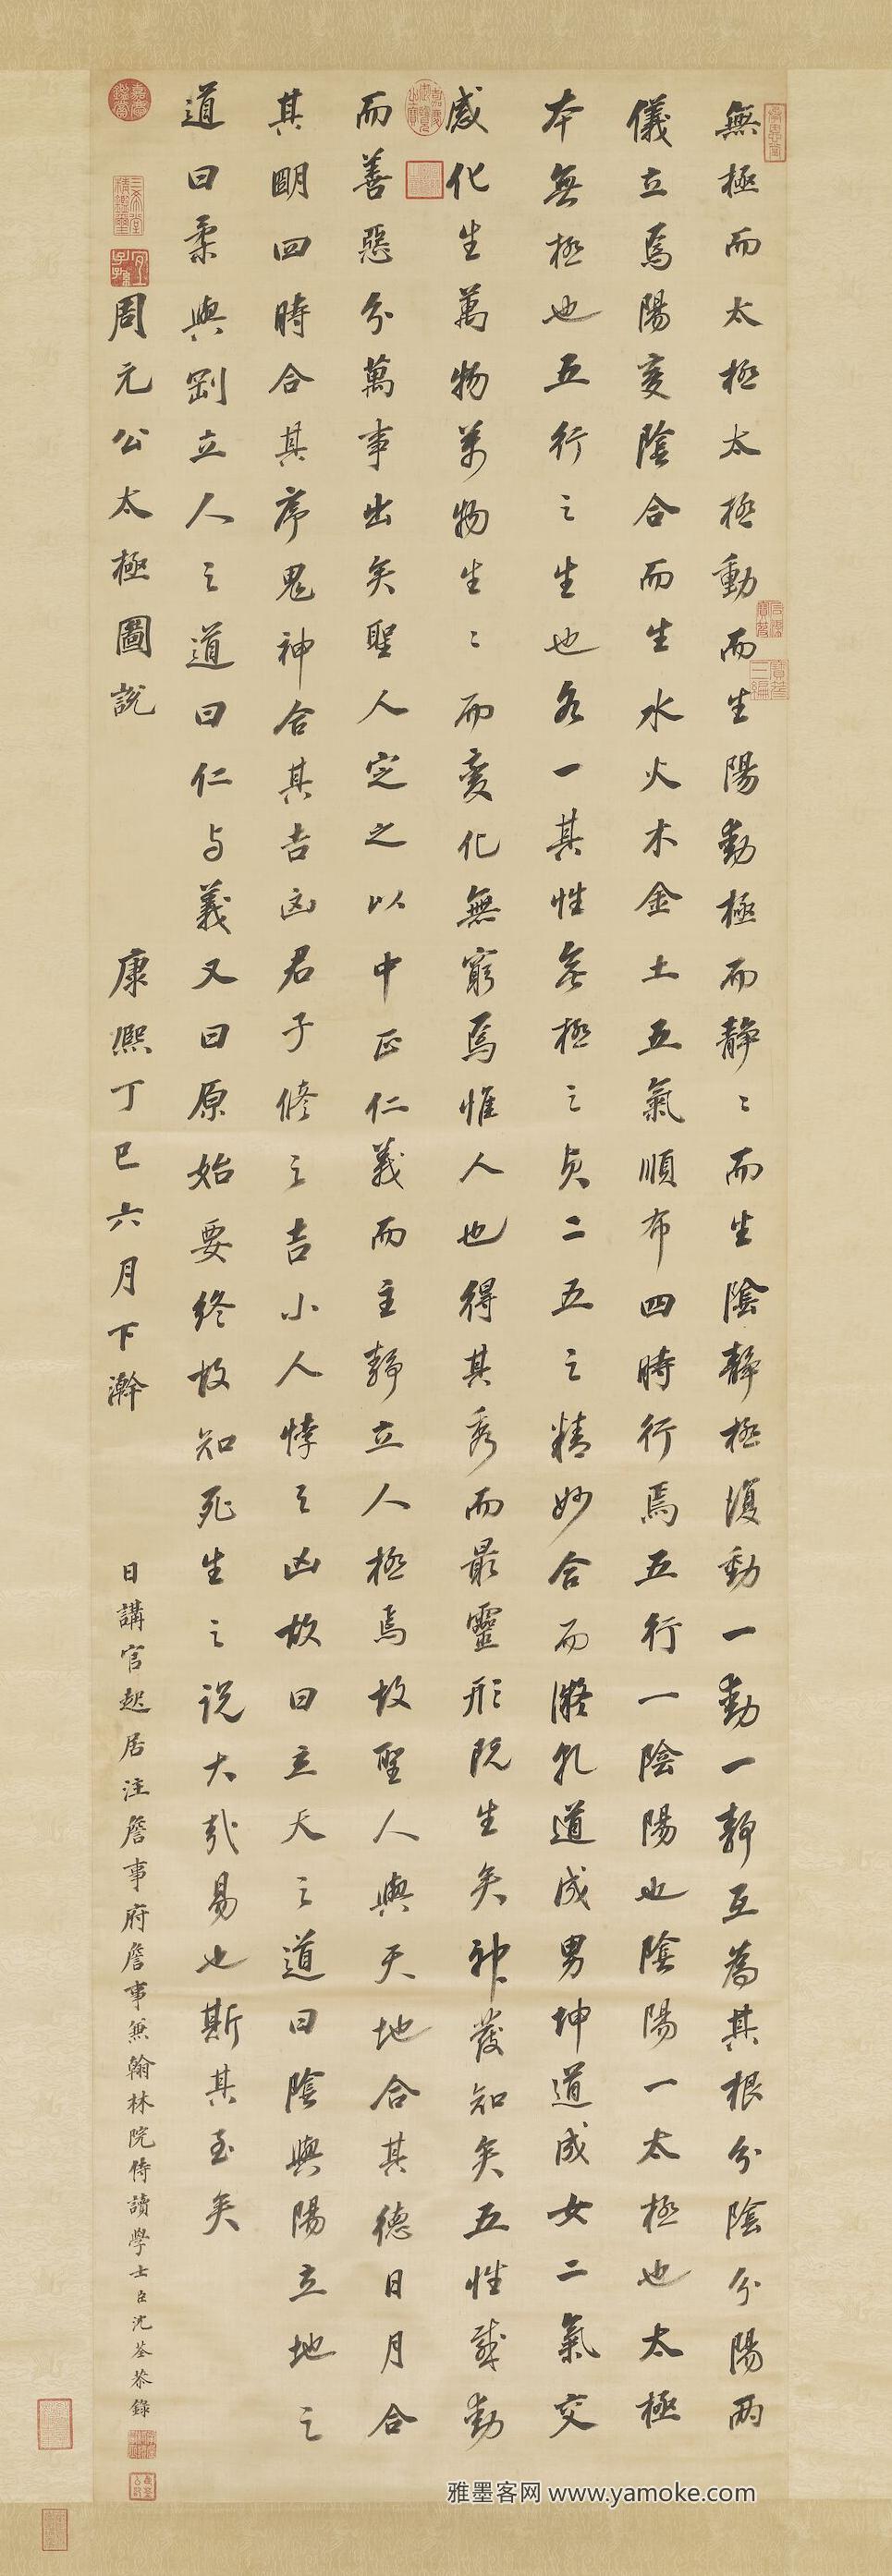 無極而太極太極動而生陽動極而靜〻而生陰靜極復動一動一靜互為其根分陰分陽兩
儀立焉陽變陰合而生水火木金土五氣順布四時行焉五行一陰陽也陰陽一太極也太極
本無極也五行之生也各一其性無極之真二五之精妙合而凝乾道成男坤道成女二氣交
感化生萬物萬物生〻而變化無窮焉惟人也得其秀而最靈形既生矣神發知矣五性感動
而善惡分萬事出矣聖人定之以中正仁義而主靜立人極焉故聖人與天地合其德日月合
其明四時合其序鬼神合其吉凶君子修之吉小人悖之凶故曰立天之道曰陰與陽立地之
道曰柔與剛立人之道曰仁与義又曰原始要終故知死生之說大哉易也斯其至矣
周元公太極圖說 康熙丁巳六月下澣 日講官起居注詹事府詹事兼翰林院侍讀學士臣沈荃恭錄
雅墨客网 www.yamoke.com